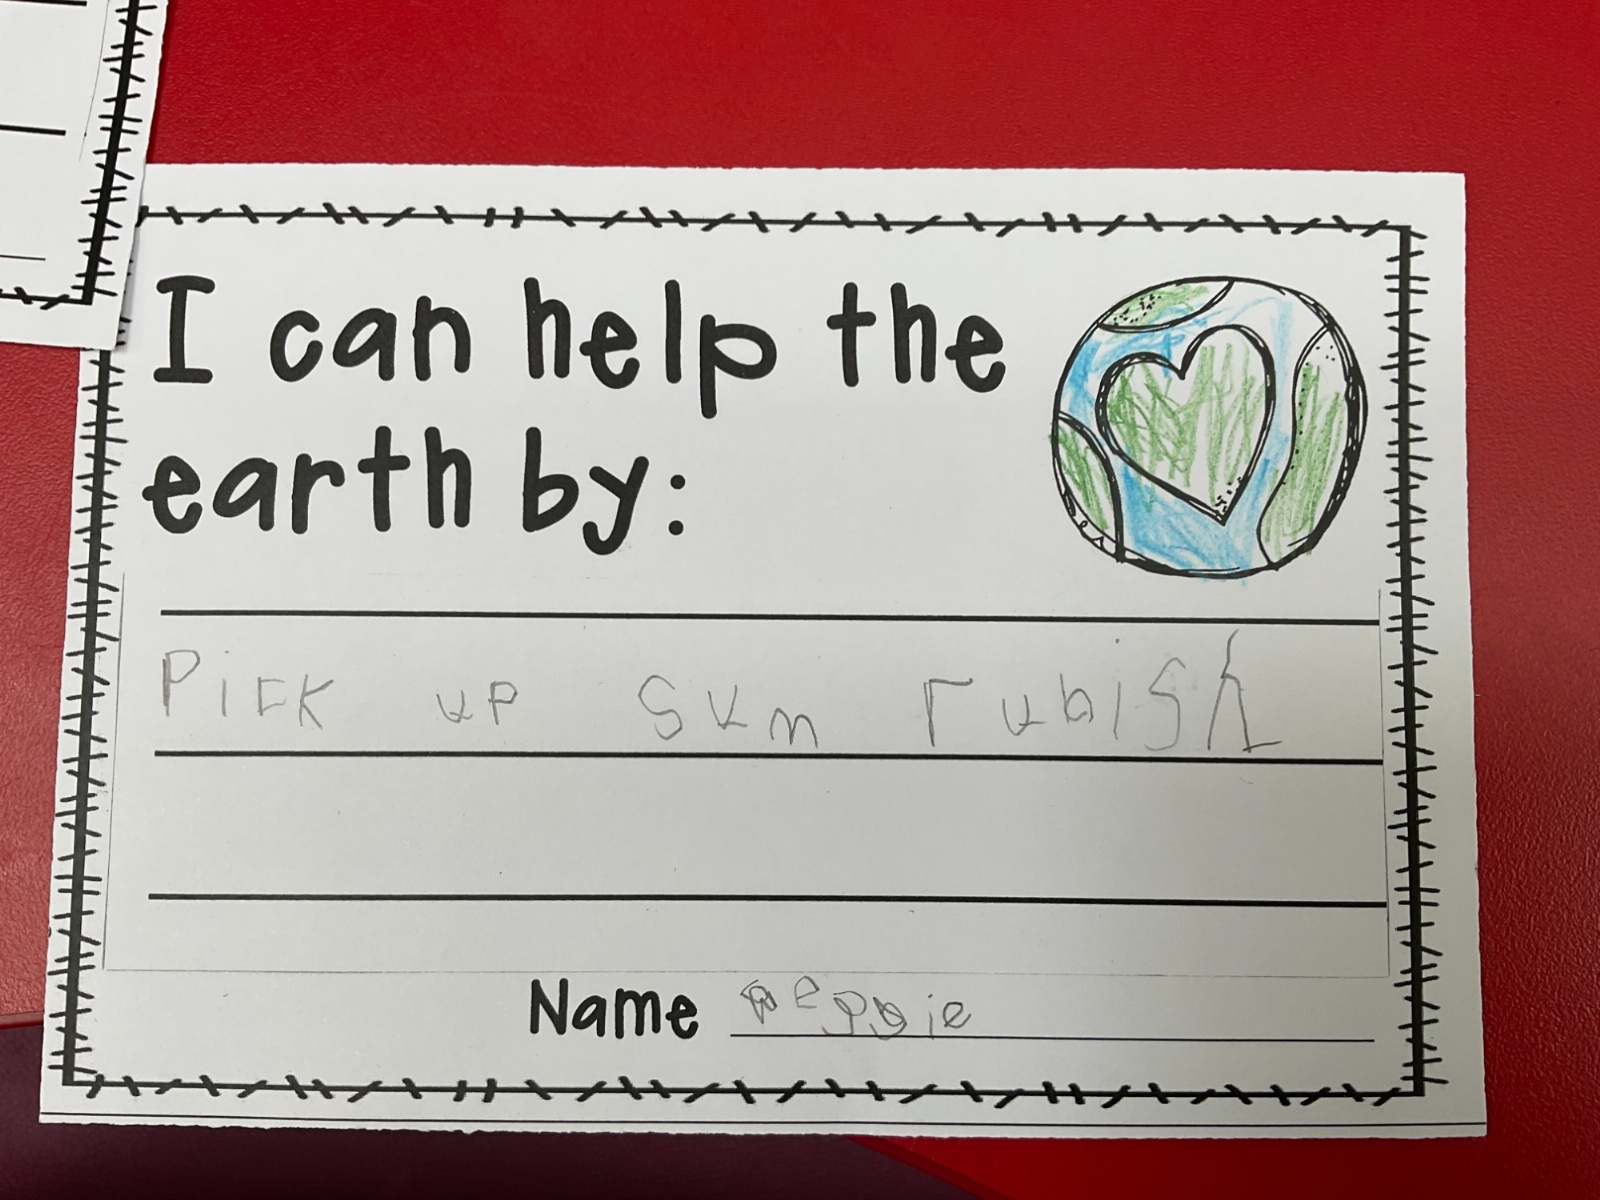 I can help the
earth by:
Pick up sum rubish
Name Reggie